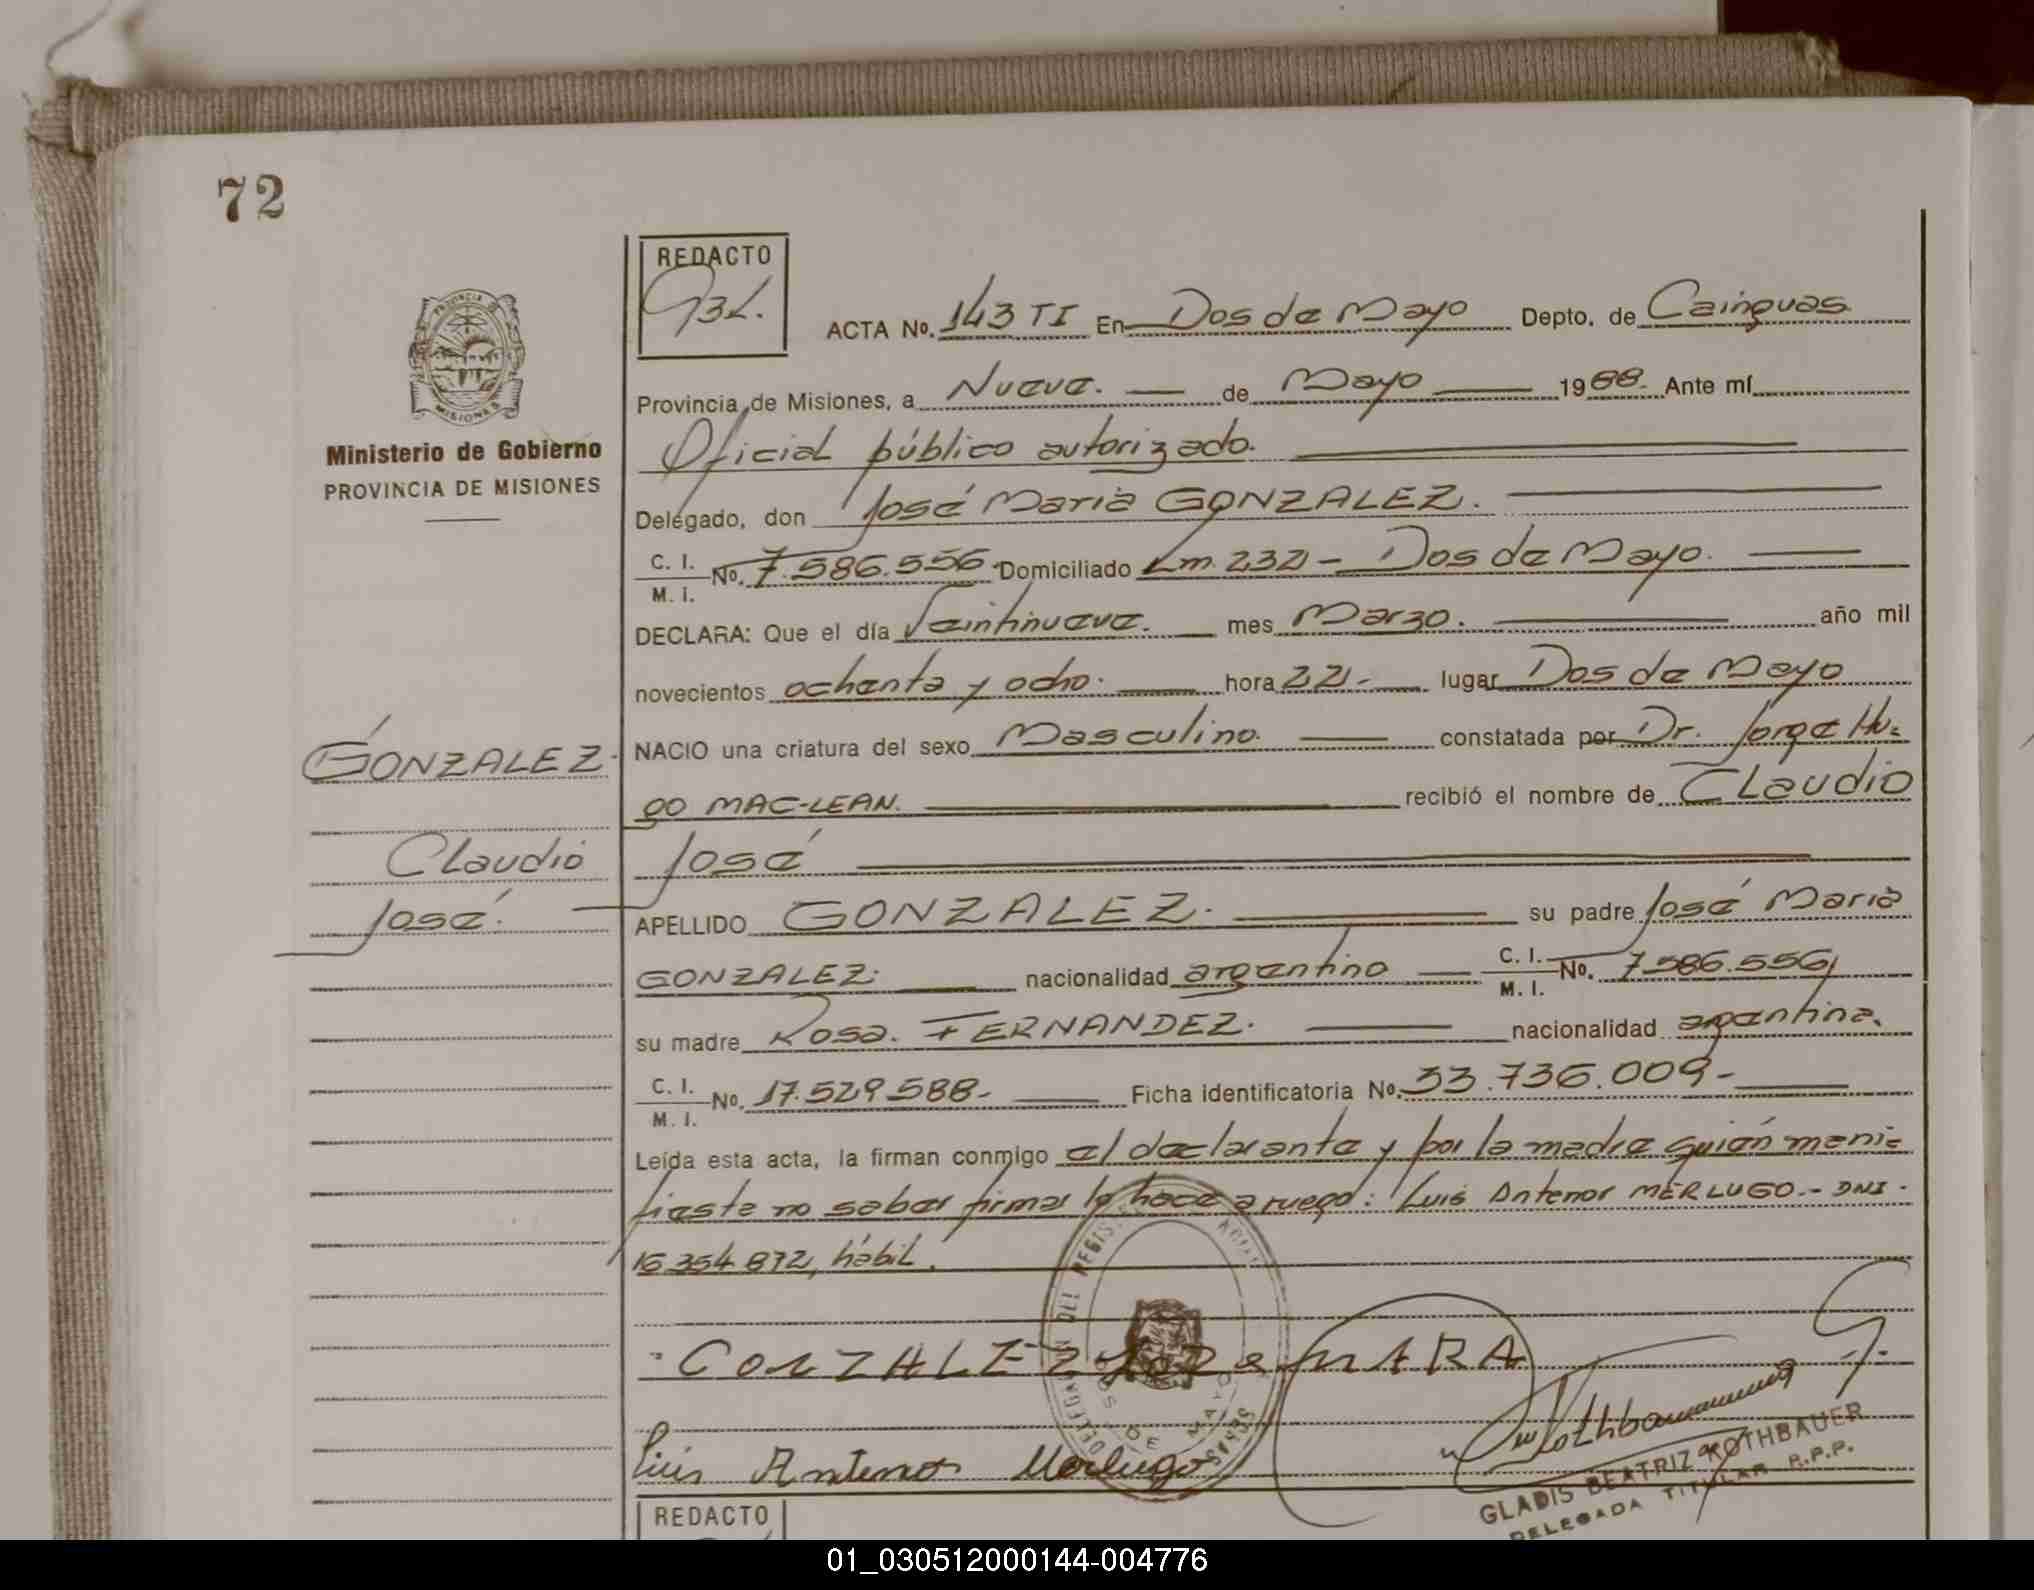 72
REDACTO
ACTA No. 143 TI En Dos de Mayo Depto. de Cainguas
PROVINCIA DE MISIONES
Provincia de Misiones, a Nueve. de Mayo 1988. Ante mí
Oficial público autorizado.
Ministerio de Gobierno
PROVINCIA DE MISIONES
Delegado, don José Maria GONZALEZ.
C. I. M. I. No. 7.586.556. Domiciliado Km. 232 - Dos de Mayo.
DECLARA: Que el día Veintinueve. mes Marzo. año mil
novecientos ochenta y ocho. hora 22 - lugar Dos de Mayo
GONZALEZ.
NACIO una criatura del sexo Masculino. constatada por Dr. Jorge Hu=
go MAC-LEAN. recibió el nombre de CLaudio
CLaudio
José
José.
APELLIDO GONZALEZ. su padre José Maria
GONZALEZ. nacionalidad argentino C. I. M. I. No. 7.586.556
su madre Rosa. FERNANDEZ. nacionalidad argentina.
C. I. M. I. No. 17.529.588.- Ficha identificatoria No. 33.736.009-
Leída esta acta, la firman conmigo el declarante y por la madre quién mani=
fiesta no saber firmar lo hace a ruego: Luis Antenor MERLUGO.- DNI.
16.354.872, hábil.
GONZALEZ JOSE MARA
Luis Antenor Merlugo
DELEGACION DEL REGISTRO
DOS DE MAYO
GLADIS BEATRIZ ROTHBAUER
DELEGADA TITULAR R.P.P.
REDACTO
01_030512000144-004776